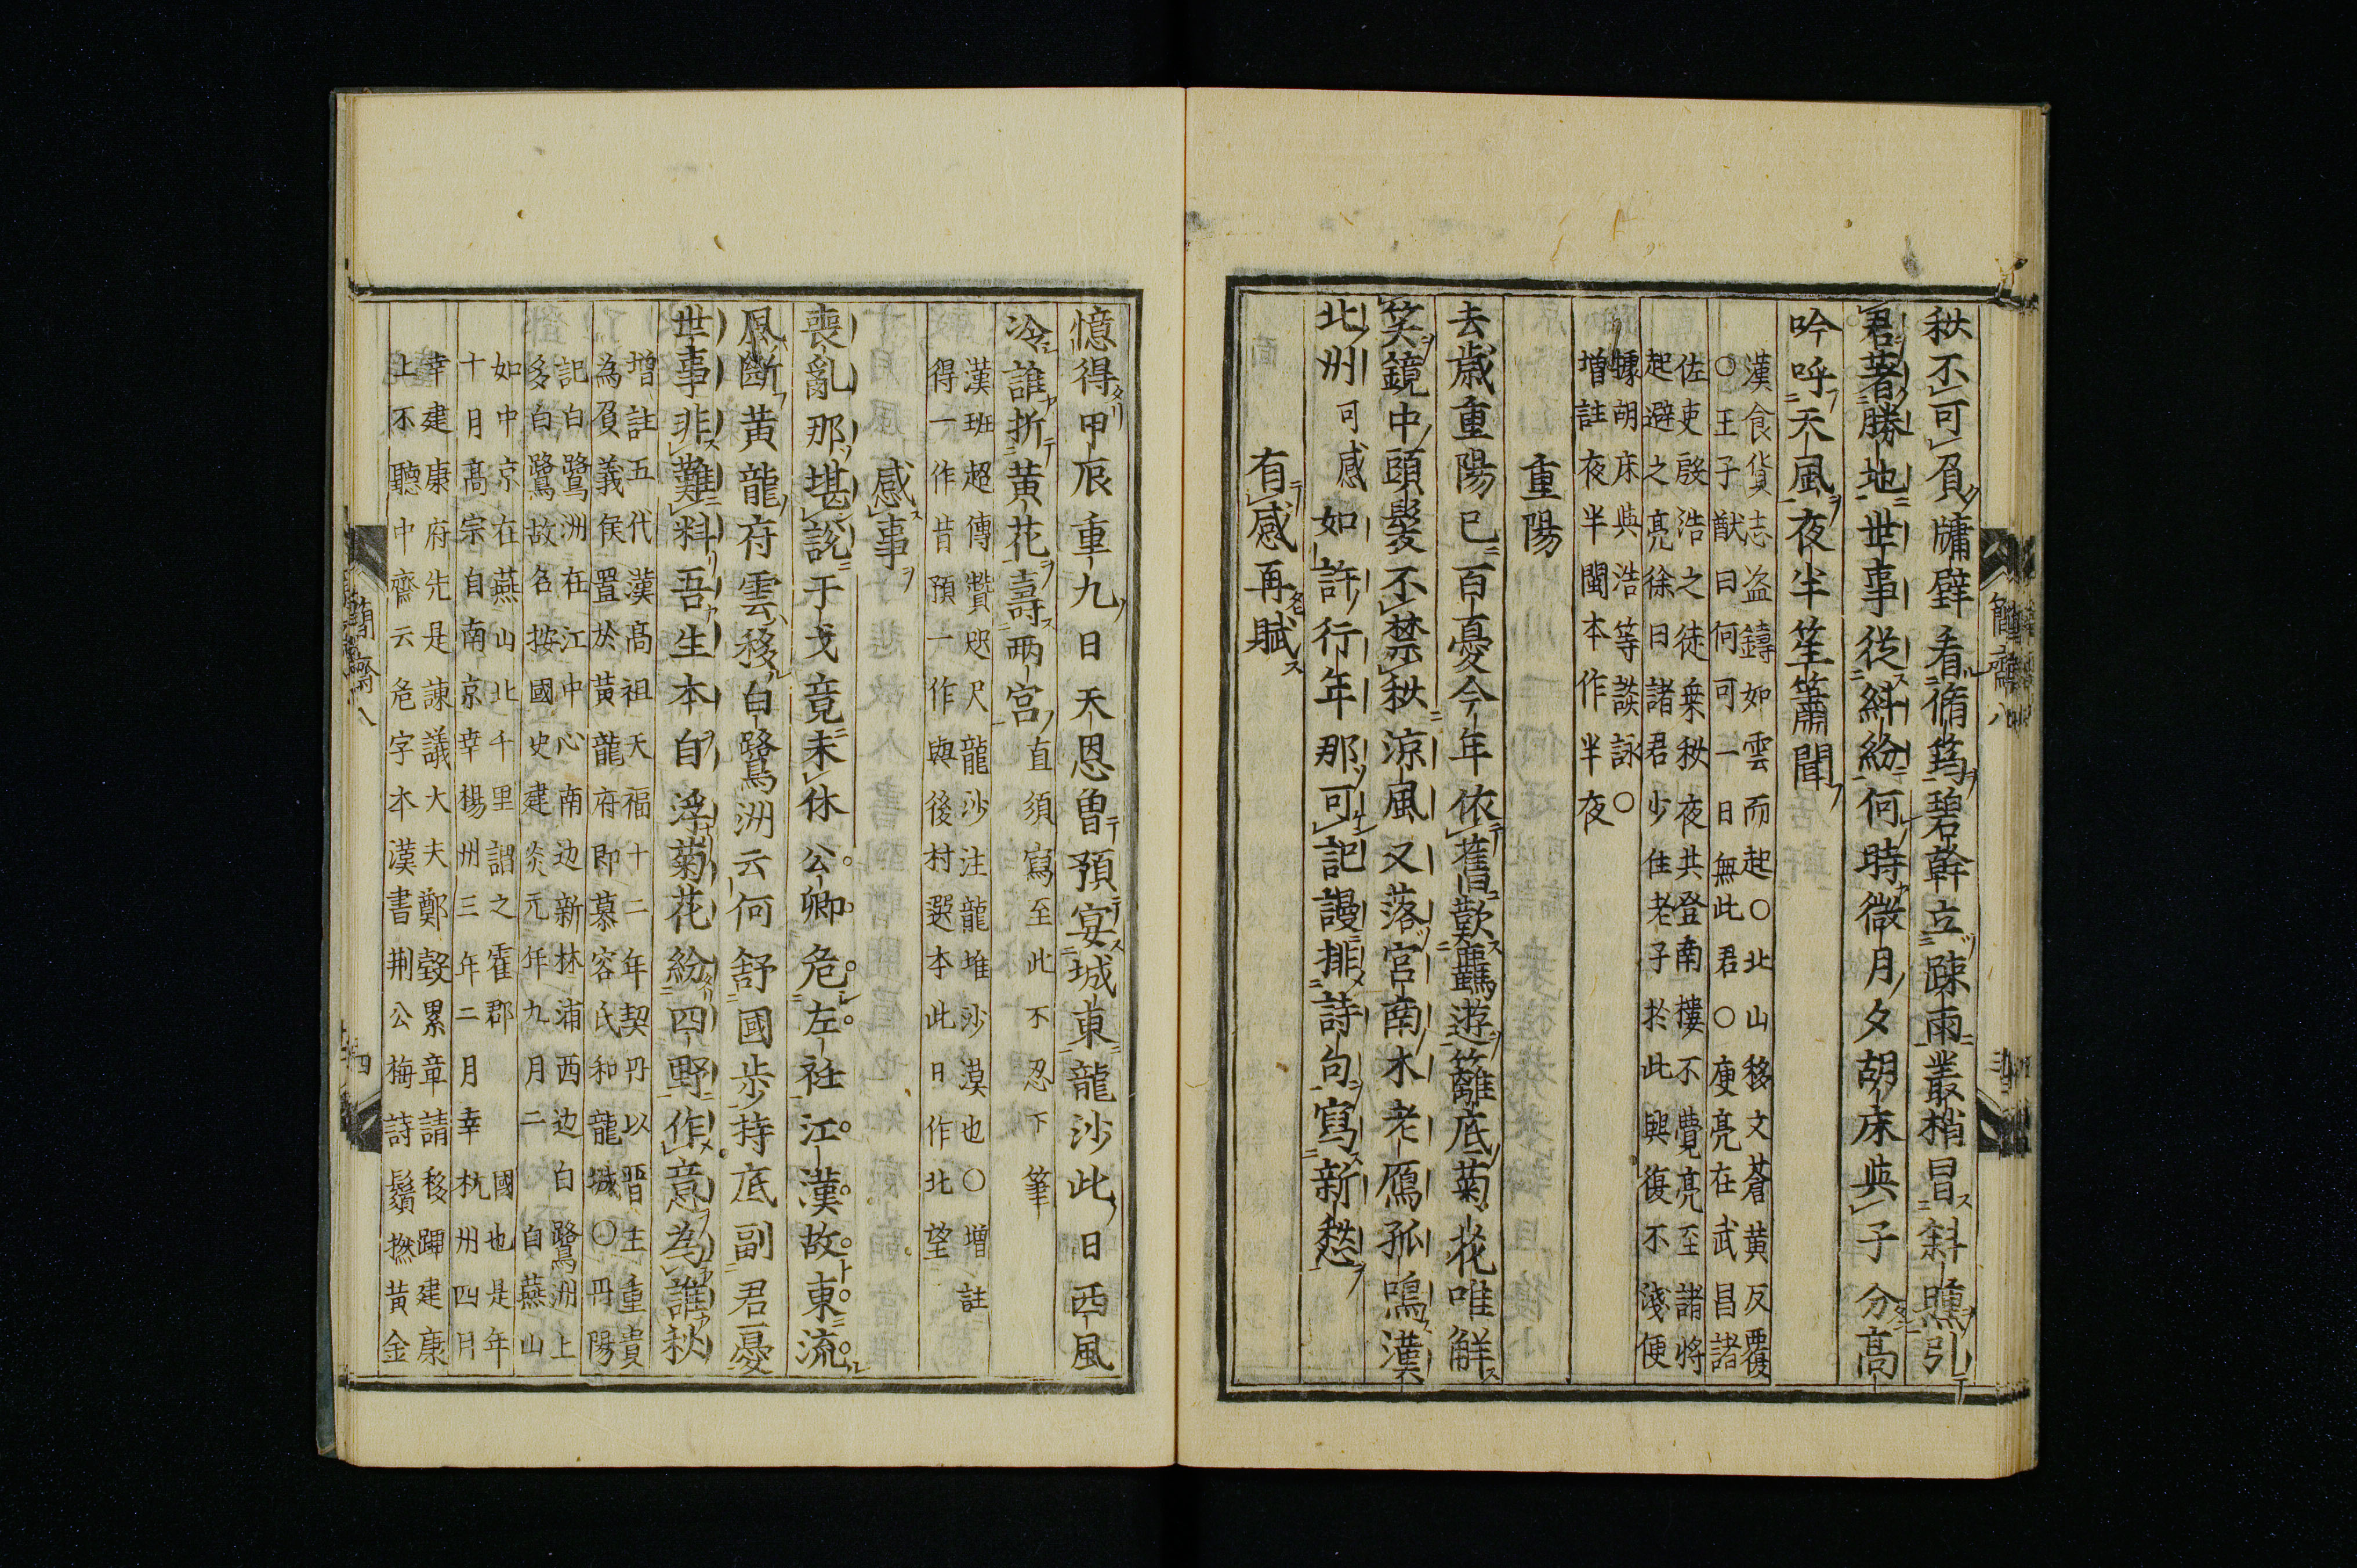 秋不可負牗壁看脩筠碧幹立踈雨叢梢冒斜曛引
君著勝地世事從糾紛何時微月夕胡床與子分高
吟呼天風夜半笙簫聞
漢食貨志盗鑄如雲而起○北山移文蒼黄反覆
○王子猷曰何可一日無此君○庾亮在武昌諸
佐吏殷浩之徒乗秋夜共登南樓不覺亮至諸将
起避之亮徐曰諸君少住老子於此興復不淺便
㨿胡床與浩等談詠○
増註夜半閩本作半夜
重陽
去歳重陽已百憂今年依舊歎羈遊籬底菊花唯解
笑鏡中頭髮不禁秋涼風又落宮南木老鴈孤鳴漢
北州可感如許行年那可記謾排詩句寫新愁
有感再賦
憶得甲辰重九日天恩曽預宴城東龍沙此日西風
冷誰折黄花壽兩宮直須寫至此不忍下筆
漢班超傳贊咫尺龍沙注龍堆沙漠也○増註
得一作昔預一作與後村選本此日作北望
感事
喪亂那堪說干戈竟未休公卿危左衽江漢故東流
風斷黄龍府雲移白鷺洲云何舒國步持底副君憂
世事非難料吾生本自浮菊花紛四野作意為誰秋
増註五代漢髙祖天福十二年契丹以晋主重貴
為負義侯置於黄龍府即慕容氏和龍城○丹陽
記白鷺洲在江中心南边新林浦西边白鷺洲上
多白鷺故名按國史建炎元年九月二 自燕山
如中京在燕山北千里謂之霍郡 國也是年
十月髙宗自南京幸楊州三年二月幸杭州四月
幸建康府先是諫議大夫鄭瑴累章請移蹕建康
上不聽中齋云危字本漢書荆公梅詩鬚撚黄金
簡齋八
四
簡齋八